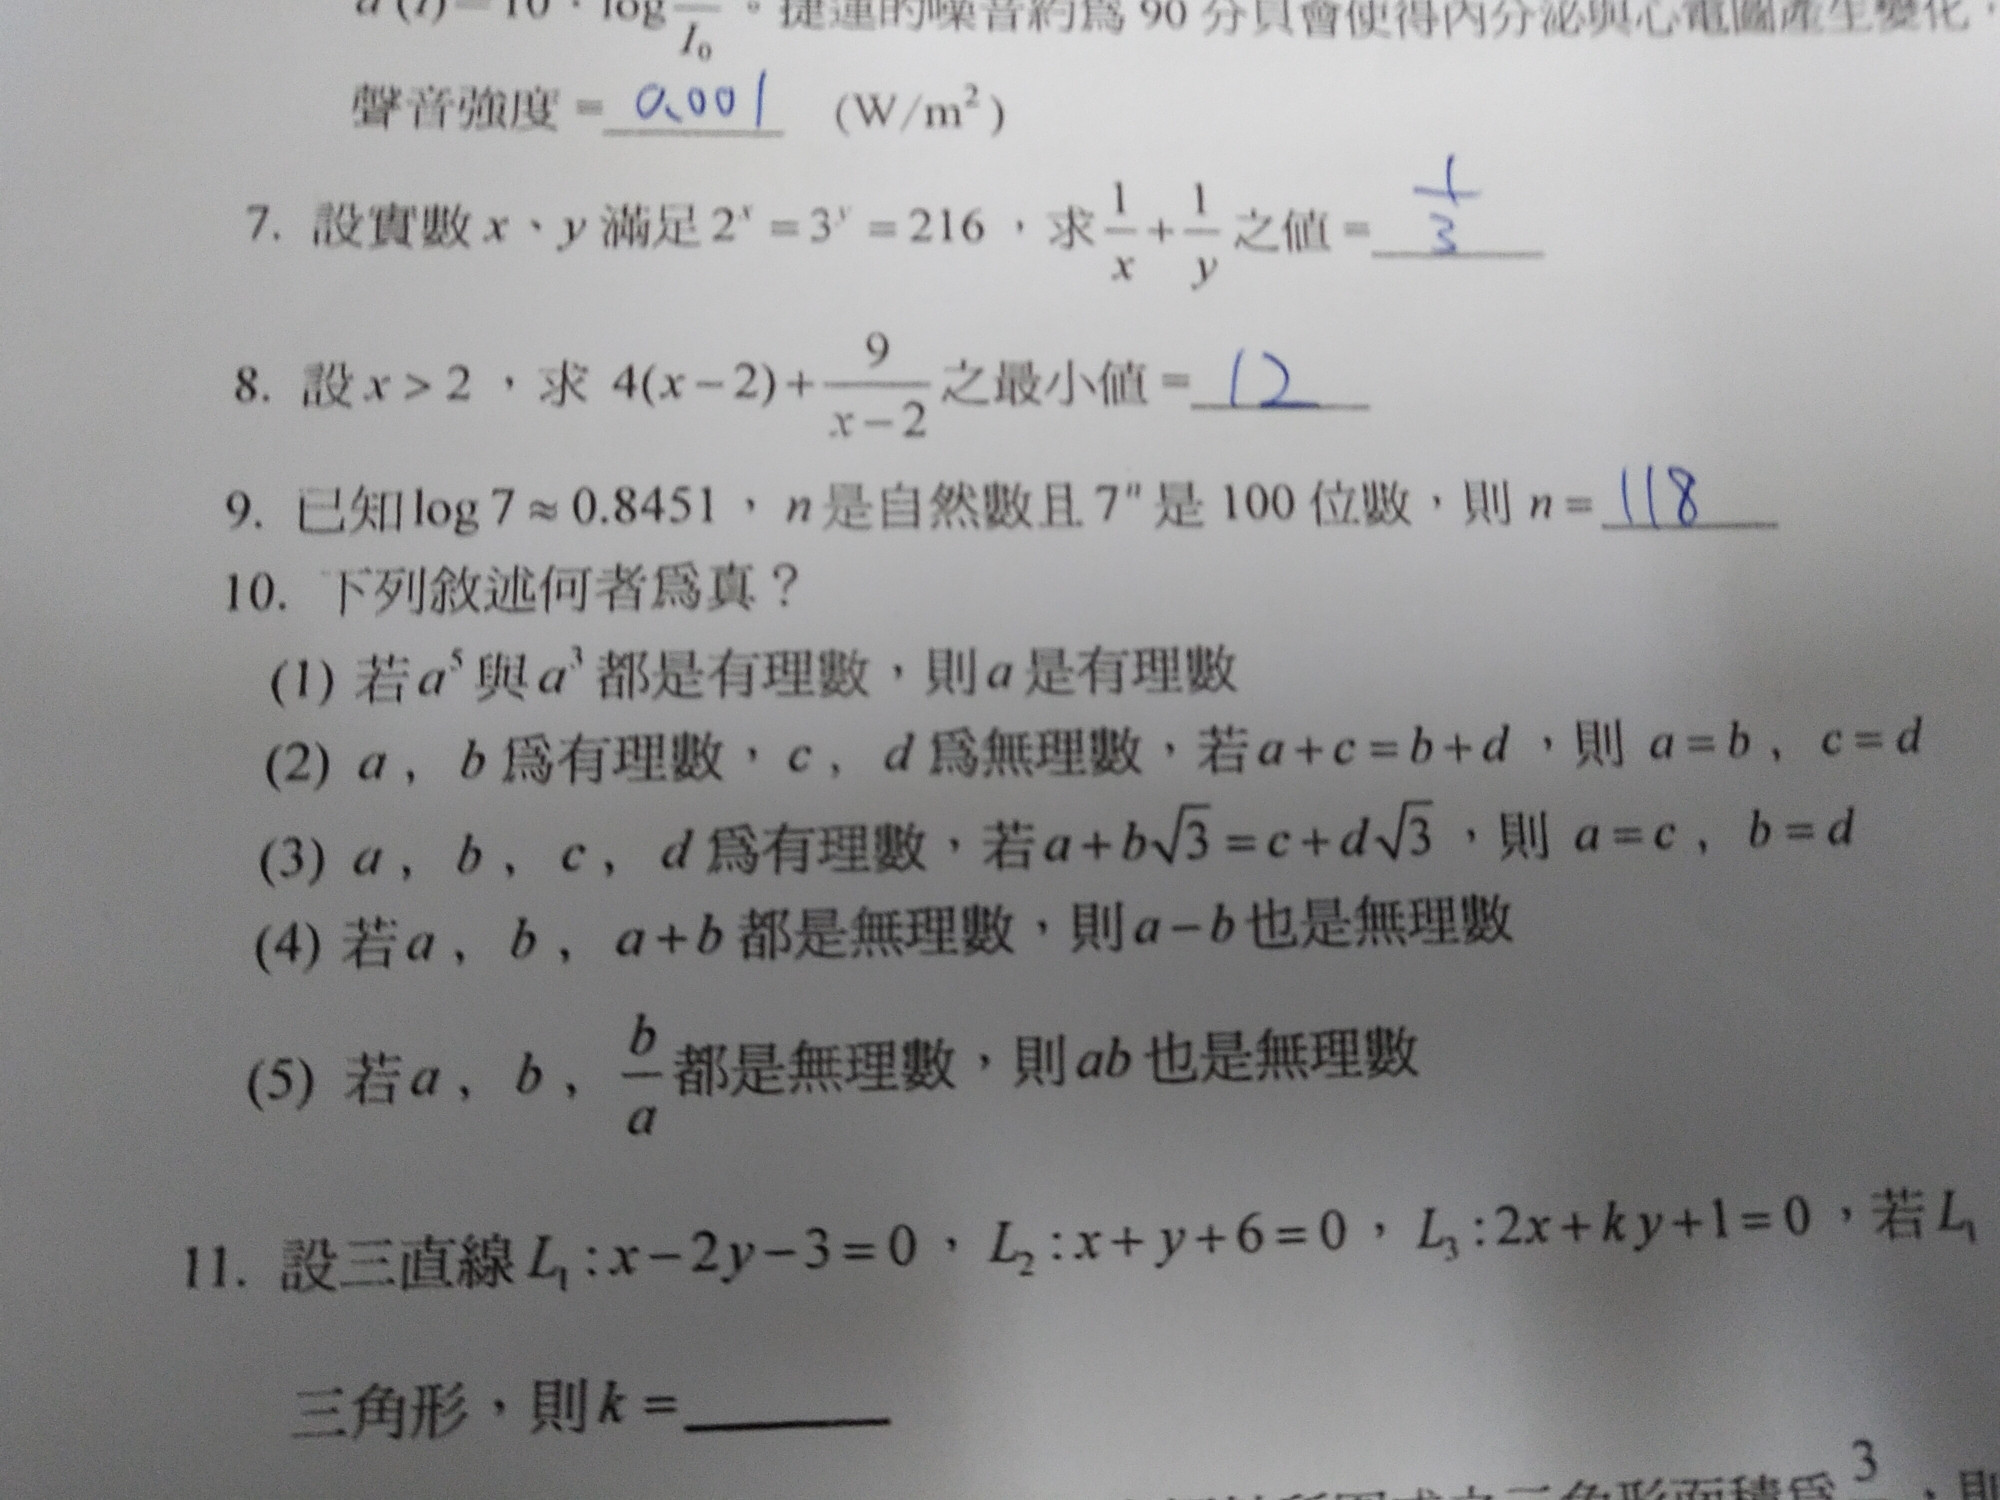 a (I) = 10 · log I/I₀ 。捷運的噪音約爲 90 分貝會使得內分泌與心電圖產生變化，
聲音強度 = 0.001 (W/m²)
7. 設實數 x、y 滿足 2ˣ = 3ʸ = 216，求 1/x + 1/y 之值 = 1/3
8. 設 x > 2，求 4(x−2) + 9/(x−2) 之最小值 = 12
9. 已知 log 7 ≈ 0.8451，n 是自然數且 7ⁿ 是 100 位數，則 n = 118
10. 下列敘述何者爲真？
(1) 若 a⁵ 與 a³ 都是有理數，則 a 是有理數
(2) a，b 爲有理數，c，d 爲無理數，若 a+c=b+d，則 a=b，c=d
(3) a，b，c，d 爲有理數，若 a+b√3=c+d√3，則 a=c，b=d
(4) 若 a，b，a+b 都是無理數，則 a−b 也是無理數
(5) 若 a，b，b/a 都是無理數，則 ab 也是無理數
11. 設三直線 L₁:x−2y−3=0，L₂:x+y+6=0，L₃:2x+ky+1=0，若 L₁
三角形，則 k =
三角形面積爲 3，則